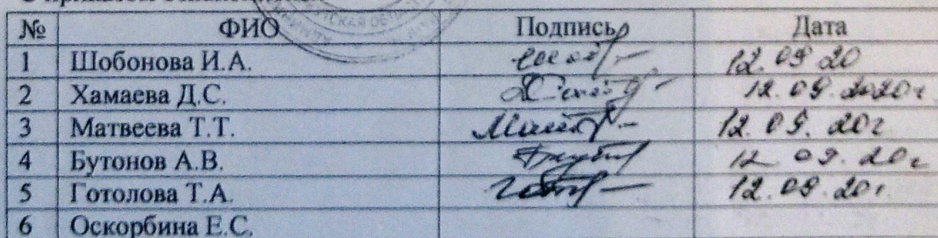 № ФИО Подпись Дата
1 Шобонова И.А. 12.09 20
2 Хамаева Д.С. 12.09.2020г
3 Матвеева Т.Т. 12.09.20г
4 Бутонов А.В. 12 09.20г
5 Готолова Т.А. 12.09.20г.
6 Оскорбина Е.С.